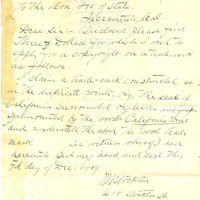 To the Hon. Sec of State.
Sacramento, Cal.
Dear Sir:- Enclosed please find
Three Dollars for which I wish to
apply for a copyright on a trademark
as follows
I claim a trade-mark constructed as
in the duplicate print, viz, The seal of
California surrounded by leaves and grapes
surmounted by the words California Wine
and underneath the above the words Trade
mark. In witness whereof I have
hereunto set my hand and seal this
7th day of Dec.
Stockton St